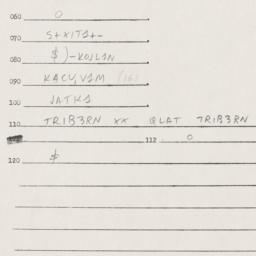 060 O
070 S+XITS+-
080 $)-KOJLSN
090 KACV,VSM (16)
100 JATKS
110 TRIB3RN XX QLAT TRIB3RN
112 O
120 $